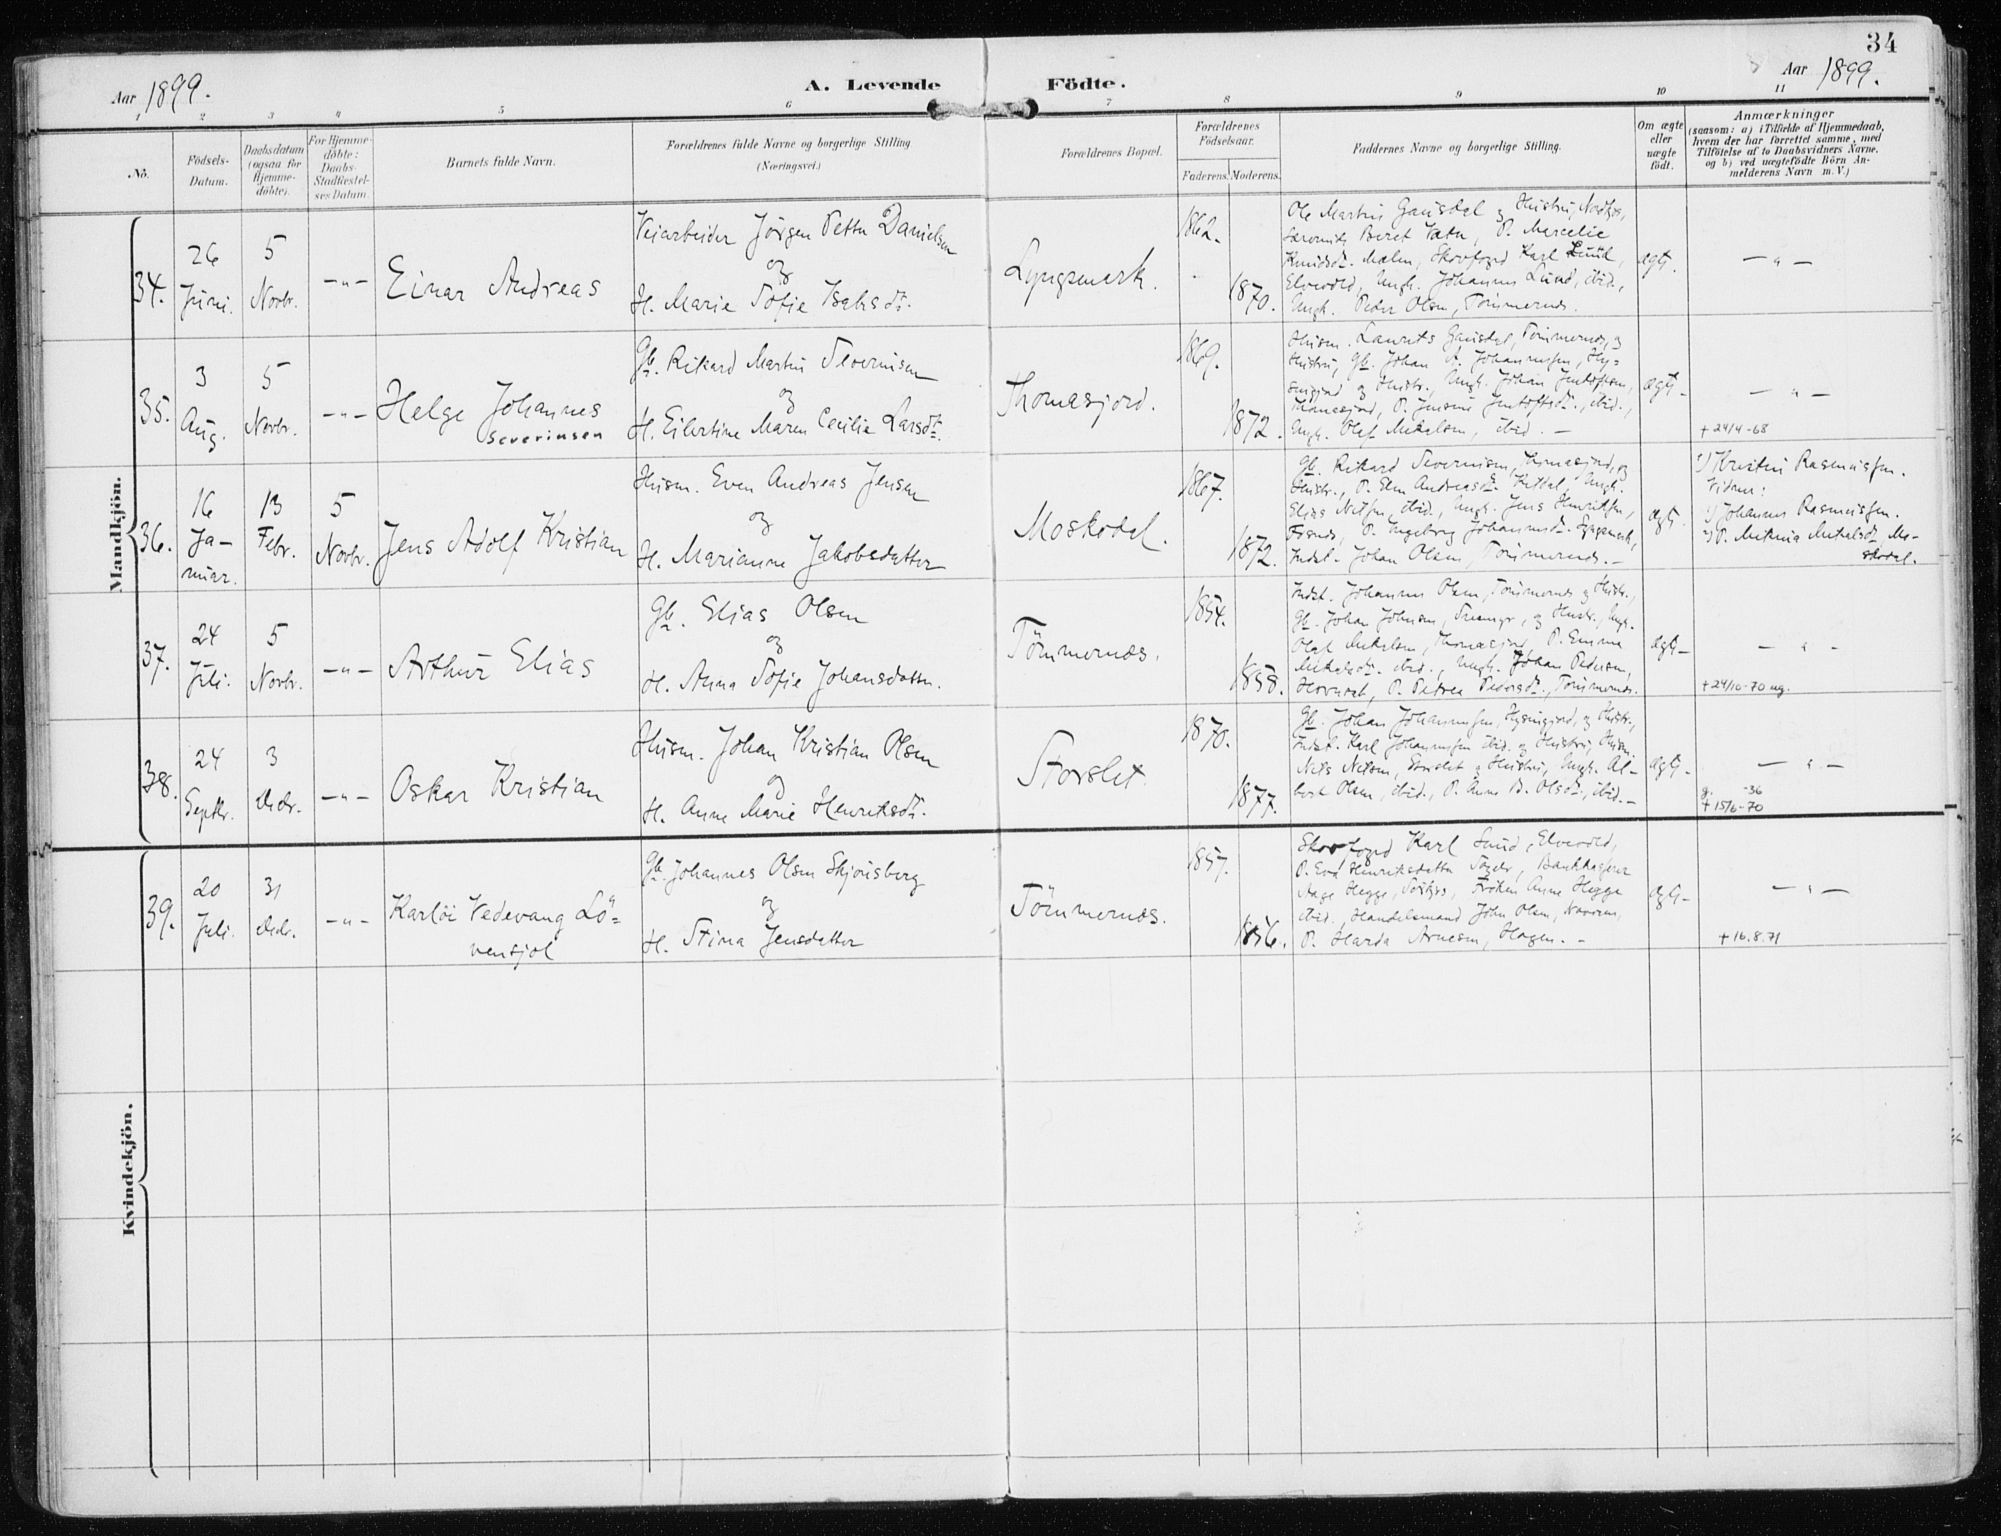 34
Aar 1899.
A. Levende Födte.
Aar 1899.
1 2 3 4 5 6 7 8 9 10 11
No.
Födsels-
Datum.
Daabsdatum
(ogsaa for
Hjemme-
döbte).
For Hjemme-
döbte:
Daabs-
Stadfæstel-
ses Datum.
Barnets fulde Navn.
Forældrenes fulde Navne og borgerlige Stilling
(Næringsvei.)
Forældrenes Bopæl.
Forældrenes
Födselsaar.
Faderens. Moderens.
Faddernes Navne og borgerlige Stilling.
Om ægte
eller
uægte
födt.
Anmærkninger
(saasom: a) i Tilfælde af Hjemmedaab,
hvem der har forrettet samme, med
Tilföielse af to Daabsvidners Navne,
og b) ved uægtefödte Börn An-
melderens Navn m. V.)
Mandkjön.
34.
26
Juni.
5
Novbr.
—"—
Einar Andreas
Veiarbeider Jörgen Petter Danielsen
og
H. Marie Sofie Isaksdt.
Lyngsmark.
1862.
1870.
Ole Martin Gausdal og Hustru, Nordkjos,
Beret Vatn, P. Marcelie
Knudsdt. Malm, Skovfoged Karl Lund,
Elvevold, Ungk. Johannes Lund, ibid.,
Ungk. Peder Olsen, Tömmernes.
ægt.
—"—
35.
3
Aug.
5
Novbr.
—"—
Helge Johannes
Severinsen
Gb. Rikard Martin Severinsen
og
H. Eilertine Maren Cecilie Larsdt.
Thomasjord.
1869.
1872.
Husm. Laurits Gausdal, Tömmernes, og
Hustru, Gb. Johan A. Johannessen, Hy-
singjord og Hustr., Ungk. Johan Jentoftsen,
Thomasjord, P. Jensine Jentoftsdt., ibid.,
Ungk. Olaf Mikalsen, ibid. —
ægt—
—"—
+ 24/4-68
36.
16
Ja-
nuar.
13
Febr.
5
Novbr.
Jens Adolf Kristian
Husm. Even Andreas Jensen
og
H. Marianne Jakobsdatter
Moskodal.
1867.
1872.
Gb. Rikard Severinsen, Thomasjord, og
Hustr., P. Elen Andreasdt. Kittdal, Ungk.
Elias Nilsen, ibid., Ungk. Jens Henriksen,
P. Ingeborg Johannesdt.
Indst. Johan Olsen, Tömmernes. —
ægt.
1) Kristin Rasmussen.
Vidner:
1) Johannes Rasmussen.
2) P. Mekalsdt, Mo-
skodal.
37.
24
Juli.
5
Novbr.
—"—
Arthur Elias
Gb. Elias Olsen
og
H. Anna Sofie Johansdatter.
Tömmernes.
1854.
1858.
Indst. Johannes Olsen, Tömmernes og Hustr.,
Gb. Johan Johnsen, og Hustr., Ungk.
Olaf Mikalsen, Thomasjord, P. Emma
Mikalsdt. ibid., Ungk. Johan Pedersen,
P. Petrea Pedersdt., Tömmernes.
ægt—
— " —
+ 24/10-70 ug.
38.
24
Septbr.
3
Decbr.
—"—
Oskar Kristian
Husm. Johan Kristian Olsen
og
H. Anne Marie Henriksdt.
Storslet.
1870.
1877.
Gb. Johan Johannessen, Hysingjord, og Hustr.,
Indst. Karl Johannessen ibid. og Hustru, Husm.
Nils Nilsen, Storslet og Hustru, Ungk. Al-
bert Olsen, ibid., P. Anne B. Olsdt., ibid. —
ægt—
— " —
g. -36
+ 15/6-70
Kvindekjön.
39.
20
Juli.
31
Decbr.
—"—
Karlöi Vedevang Lö-
vensjol
Gb. Johannes Olsen Skjönsberg
og
H. Stina Jensdatter
Tömmernes.
1857.
1856.
Skovfoged Karl Lund, Elvevold,
P. Eva Henriksdatter Bankkasserer
Aage Hegge, Fröken Anne Hegge
ibid., Handelsmand John Olsen,
P. Harda Arnesen, Hagen. —
ægt—
— " —
+ 16.8.71